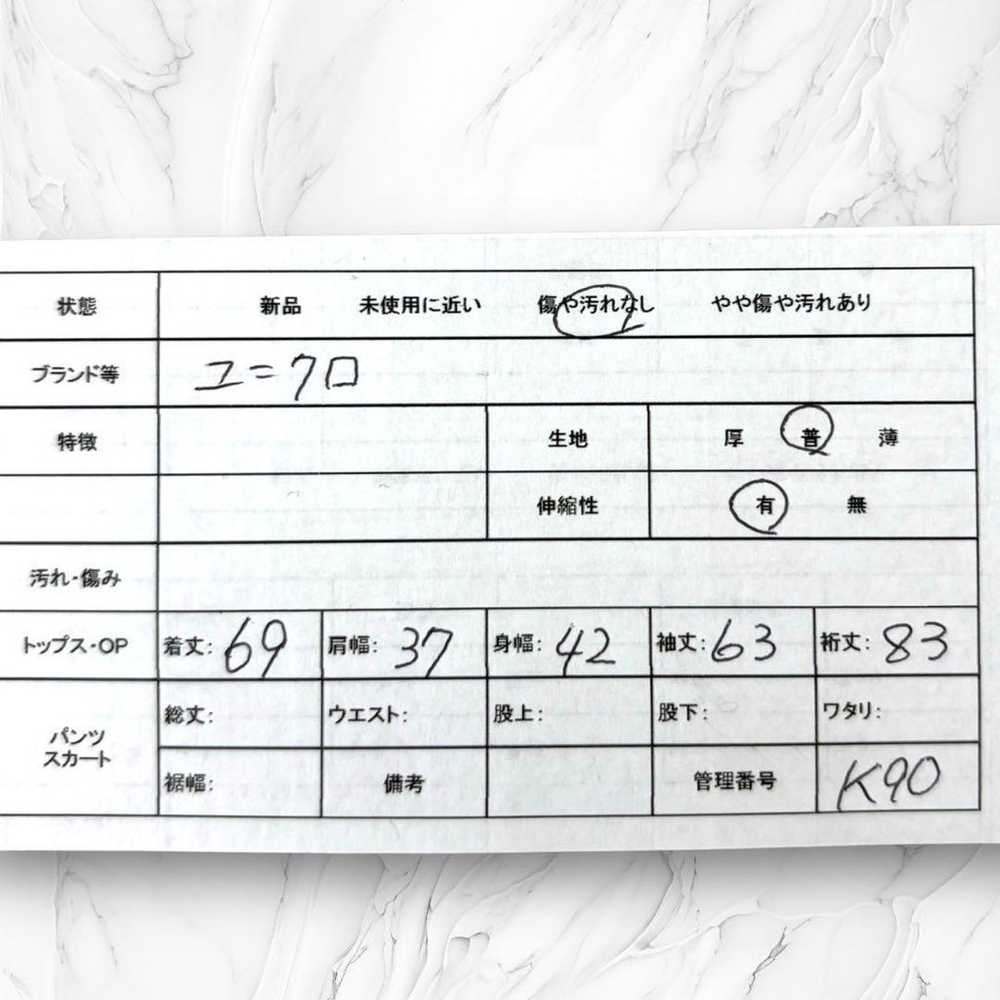 状態 新品 未使用に近い 傷や汚れなし やや傷や汚れあり
ブランド等 ユニクロ
特徴 生地 厚 普 薄
伸縮性 有 無
汚れ・傷み
トップス・OP 着丈: 69 肩幅: 37 身幅: 42 袖丈: 63 裄丈: 83
パンツ
スカート
総丈: ウエスト: 股上: 股下: ワタリ:
裾幅: 備考 管理番号 K90